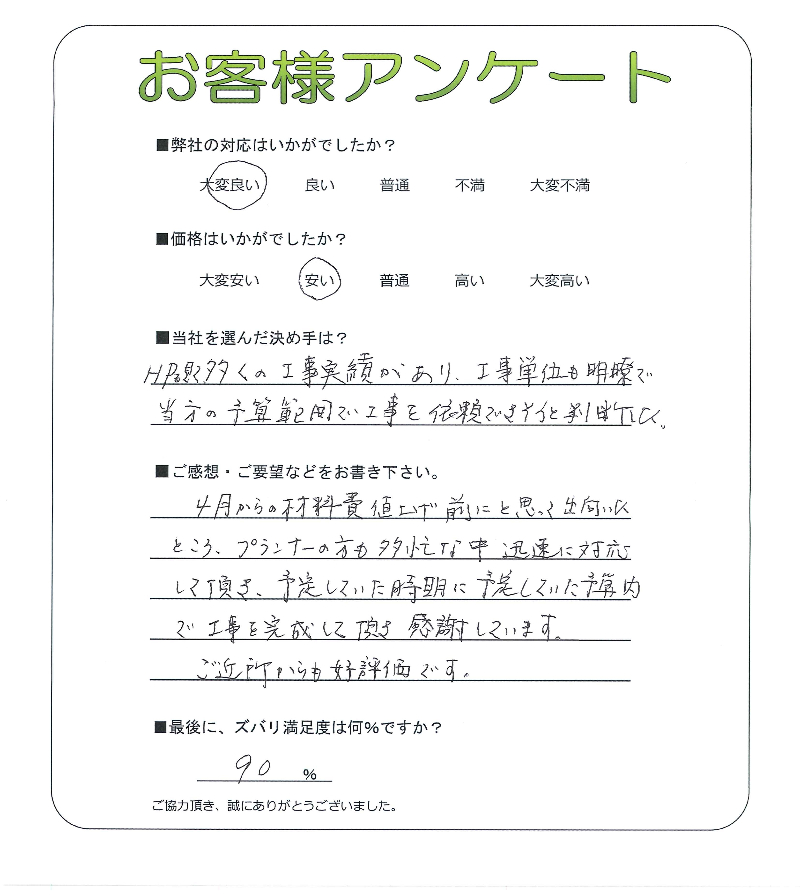 お客様アンケート
■弊社の対応はいかがでしたか?
大変良い 良い 普通 不満 大変不満
■価格はいかがでしたか?
大変安い 安い 普通 高い 大変高い
■当社を選んだ決め手は?
HP 多くの工事実績があり、工事単位も明瞭で
当方の予算範囲で工事を依頼できそうと判断した。
■ご感想・ご要望などをお書き下さい。
4月からの材料費値上げ前にと思って出向いた
ところ、プランナーの方も多忙な中 迅速に対応
して頂き、予定していた時期に予定していた予算内
で工事を完成して頂き感謝しています。
ご近所からも好評価です。
■最後に、ズバリ満足度は何%ですか?
90 %
ご協力頂き、誠にありがとうございました。